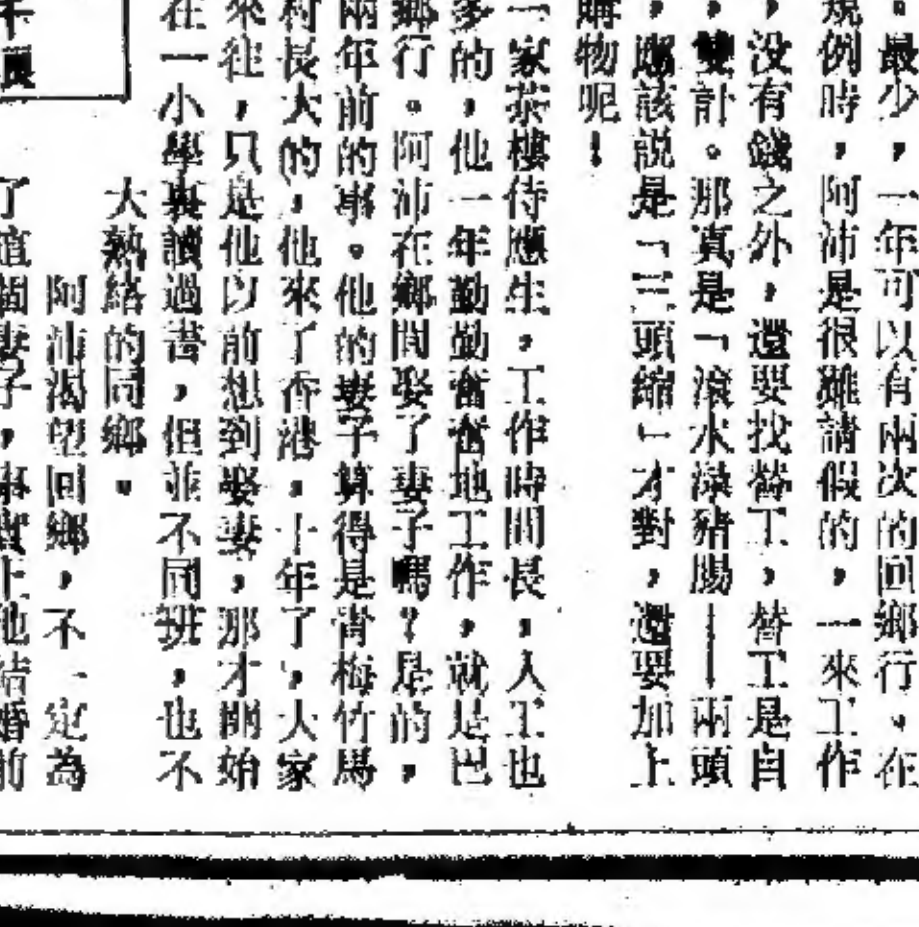 。最少，一年可以有兩次的回鄉行。在
規例時，阿沛是很難請假的，一來工作
，没有錢之外，還要找替工，替工是自
，雙計。那真是「滾水淥豬腸——兩頭
，應該説是「三頭縮」才對，還要加上
購物呢！
一家茶樓侍應生，工作時間長，人工也
多的，他一年勤勤奮奮地工作，就是巴
鄉行。阿沛在鄉間娶了妻子嗎？是的，
兩年前的事。他的妻子算得是青梅竹馬
村長大的，他來了香港，十年了，大家
來往，只是他以前想到娶妻，那才開始
在一小學裏讀過書，但並不同班，也不
大熟絡的同鄉。
阿沛渴望回鄉，不一定為
了這個妻子，事實上他結婚前